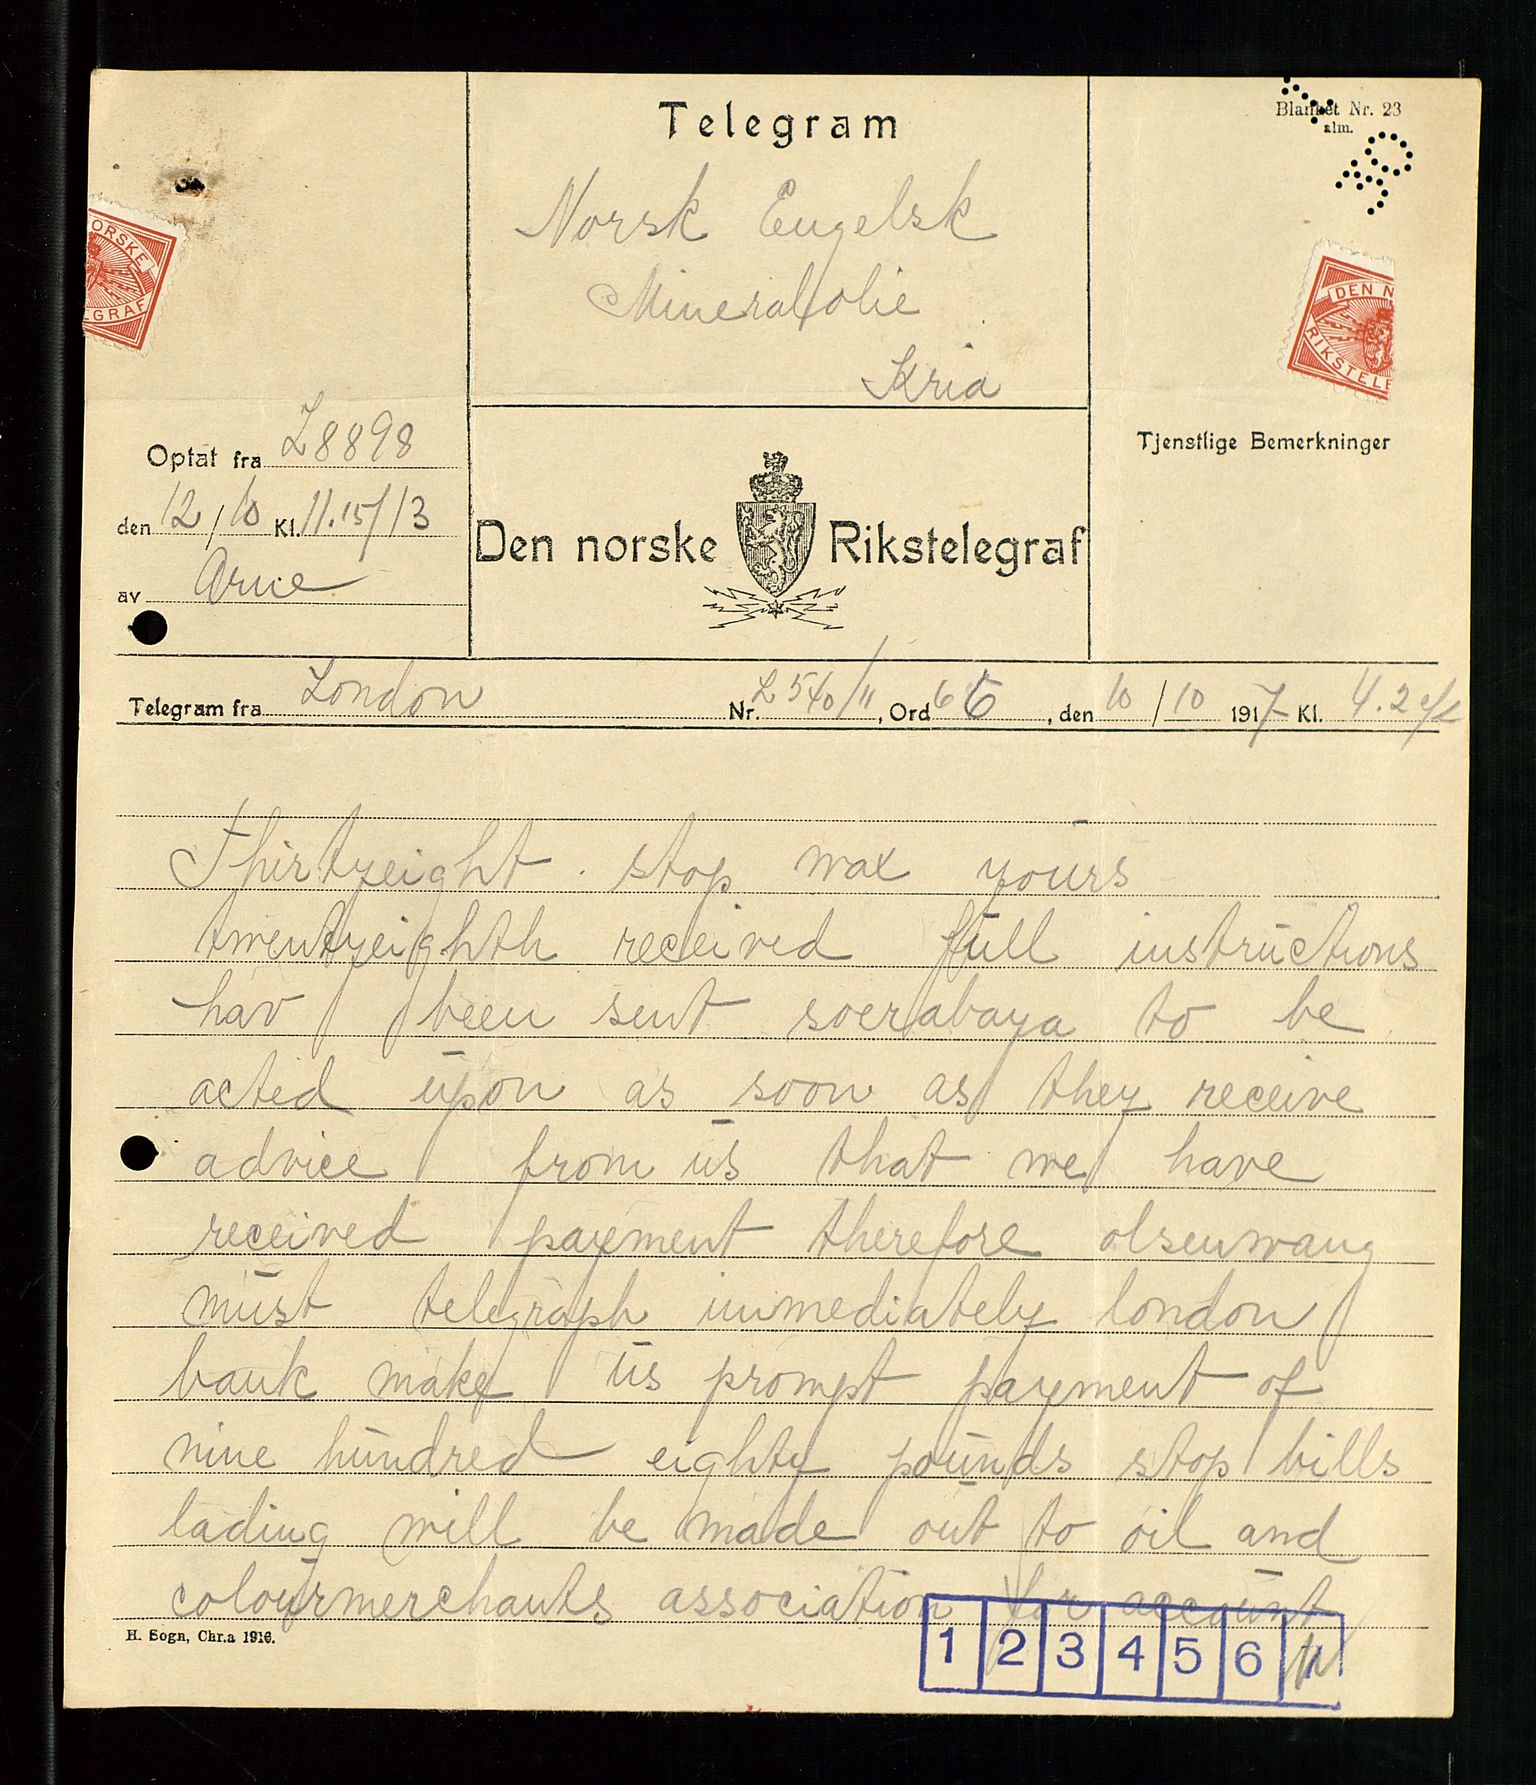 Telegram
Blanket Nr. 23
alm.
Norsk Engelsk
Mineralolie
Kria
ORSKE
EGRAF
DEN N
RIKSTELE
Optat fra L8898
den 12/10 Kl. 11.15/13
av Arne
Den norske Rikstelegraf
Tjenstlige Bemerkninger
Telegram fra London Nr. L540/11, Ord 66, den 10/10 1917 Kl. 4.2
Thirtyeight stop wax yours
twentyeighth received full instructions
hav been sent soerabaya to be
acted upon as soon as they receive
advice from us that we have
received payment therefore olsenwang
must telegraph immediately london
bank make us prompt payment of
nine hundred eighty pounds stop bills
lading will be made out to oil and
colourmerchants association for account
H. Sogn, Chr.a 1916.
1 2 3 4 5 6